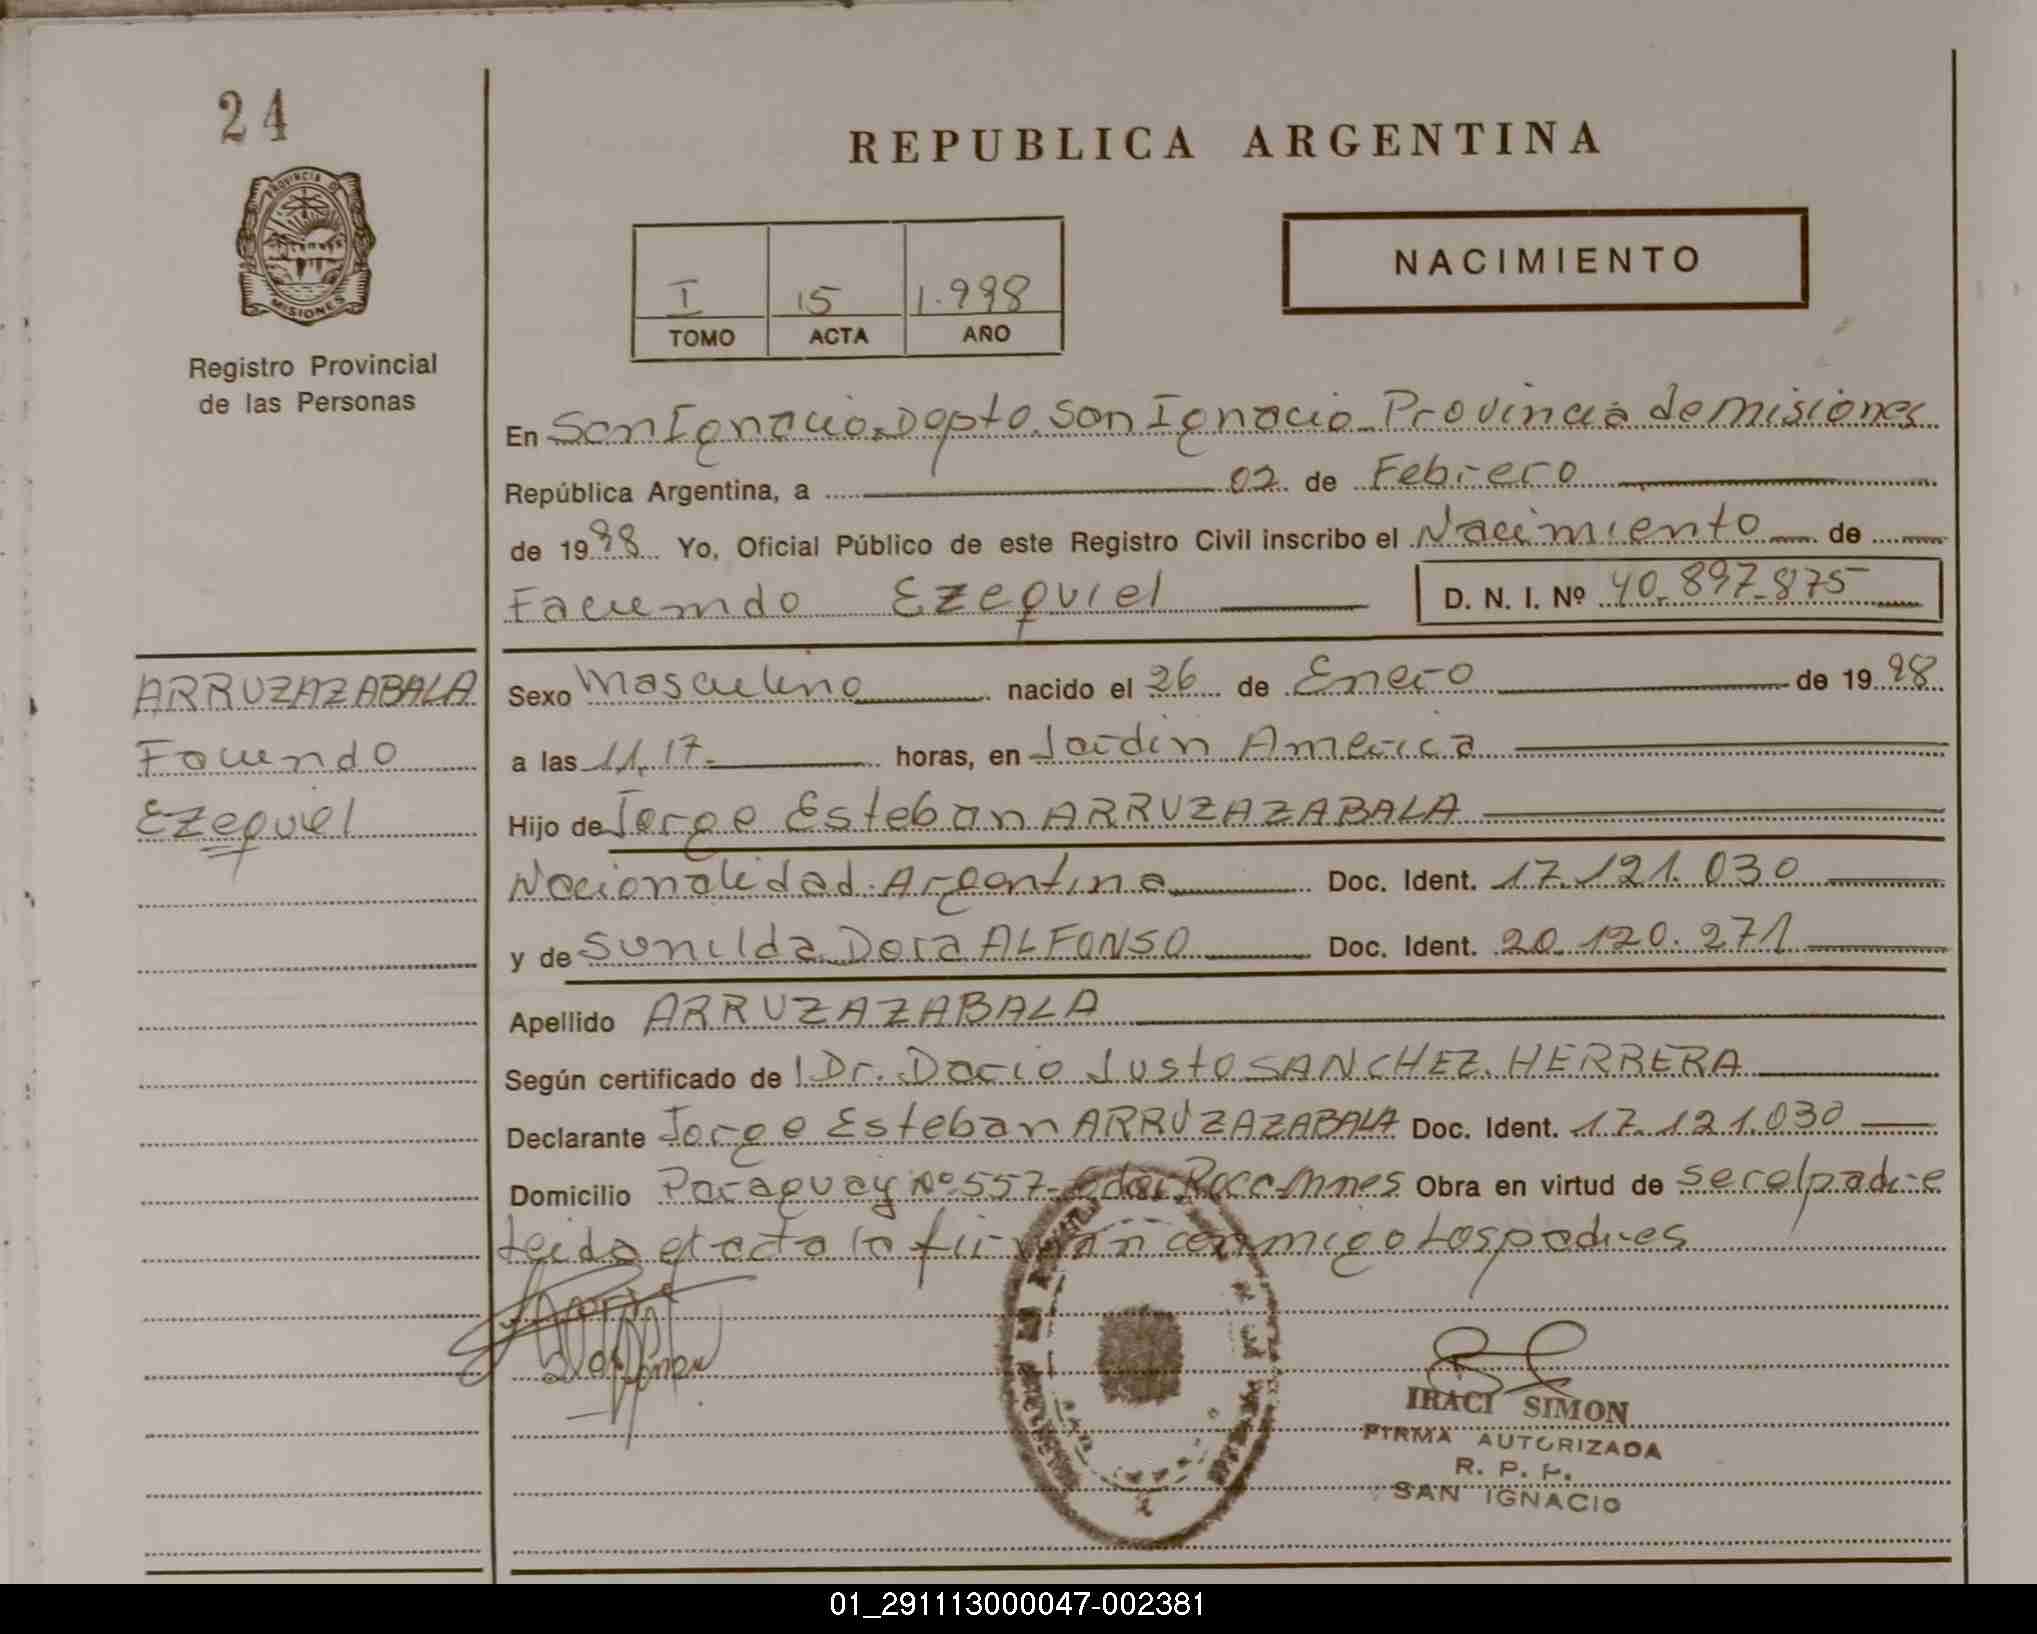 24
REPUBLICA ARGENTINA
PROVINCIA DE
MISIONES
Registro Provincial
de las Personas
I 15 1.998
TOMO ACTA AÑO
NACIMIENTO
En San Ignacio, Dpto. San Ignacio Provincia de misiones
República Argentina, a 02 de Febrero
de 1998 Yo, Oficial Público de este Registro Civil inscribo el Nacimiento de
Facundo Ezequiel D. N. I. Nº 40.897.875
ARRUZAZABALA
Facundo
Ezequiel
Sexo Masculino nacido el 26 de Enero de 1998
a las 11,17 horas, en Jardin America
Hijo de Jorge Esteban ARRUZAZABALA
Nacionalidad Argentina Doc. Ident. 17.121.030
y de Sunilda Dora ALFONSO Doc. Ident. 20.120.271
Apellido ARRUZAZABALA
Según certificado de l Dr. Dario Justo SANCHEZ HERRERA
Declarante Jorge Esteban ARRUZAZABALA Doc. Ident. 17.121.030
Domicilio Paraguay Nº 557- Mnes Obra en virtud de ser el padre
Leida el acta la firman conmigo Los padres
IRACI SIMON
FIRMA AUTORIZADA
R. P. P.
SAN IGNACIO
01_291113000047-002381